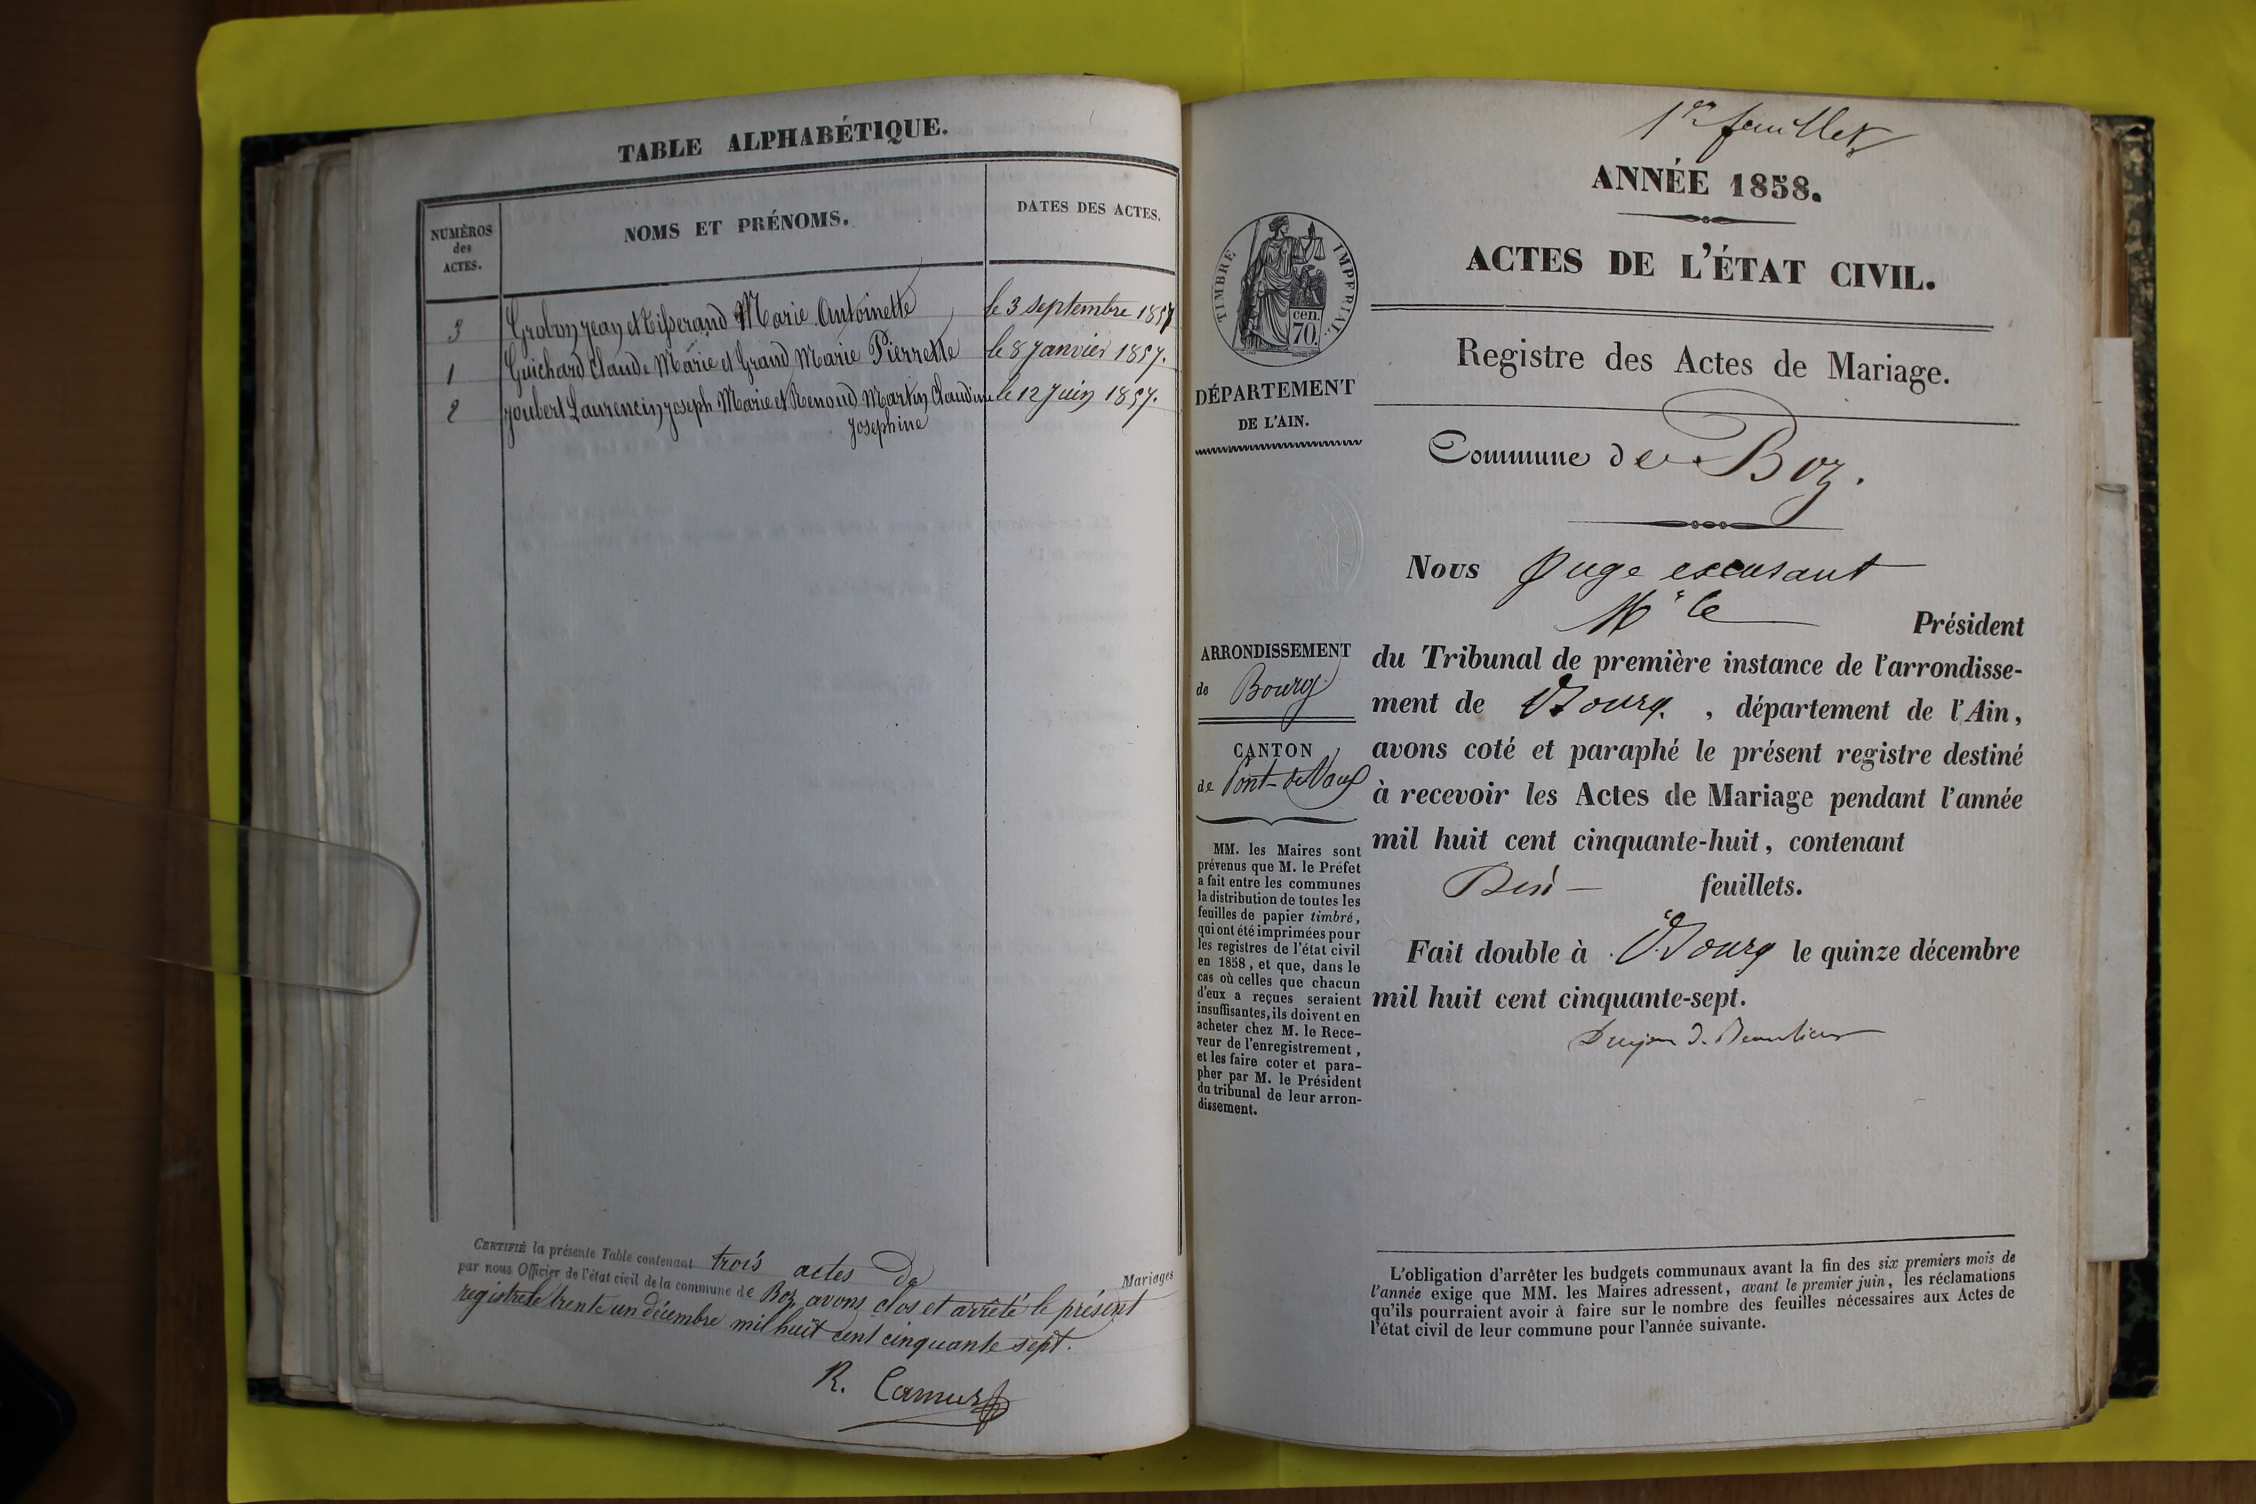 TABLE ALPHABÉTIQUE.
NUMÉROS
des
ACTES.
NOMS ET PRÉNOMS.
DATES DES ACTES.
3 Grobon Jean et Tisserand Marie Antoinette le 3 septembre 1857
1 Guichard Claude Marie et Grand Marie Pierrette le 8 Janvier 1857.
2 Joubert Laurencin Joseph Marie et Renoud Martin Claudine le 12 Juin 1857.
Josephine
CERTIFIÉ la présente Table contenant trois actes de Mariages
par nous Officier de l'état civil de la commune de Boz, avons clos et arrêté le présent
registre le trente un décembre mil huit cent cinquante sept.
R. Camus
1er feuillet
ANNÉE 1858.
ACTES DE L'ÉTAT CIVIL.
Registre des Actes de Mariage.
Commune de Boz.
TIMBRE IMPÉRIAL.
cen.
70.
DÉPARTEMENT
DE L'AIN.
ARRONDISSEMENT
de Bourg
CANTON
de Pont-de-Vaux
MM. les Maires sont
prévenus que M. le Préfet
a fait entre les communes
la distribution de toutes les
feuilles de papier timbré,
qui ont été imprimées pour
les registres de l'état civil
en 1858, et que, dans le
cas où celles que chacun
d'eux a reçues seraient
insuffisantes, ils doivent en
acheter chez M. le Rece-
veur de l'enregistrement,
et les faire coter et para-
pher par M. le Président
du tribunal de leur arron-
dissement.
Nous Juge excusant
Mr le Président
du Tribunal de première instance de l'arrondisse-
ment de Bourg. , département de l'Ain,
avons coté et paraphé le présent registre destiné
à recevoir les Actes de Mariage pendant l'année
mil huit cent cinquante-huit, contenant
feuillets.
Fait double à Bourg le quinze décembre
mil huit cent cinquante-sept.
L'obligation d'arrêter les budgets communaux avant la fin des six premiers mois de
l'année exige que MM. les Maires adressent, avant le premier juin, les réclamations
qu'ils pourraient avoir à faire sur le nombre des feuilles nécessaires aux Actes de
l'état civil de leur commune pour l'année suivante.